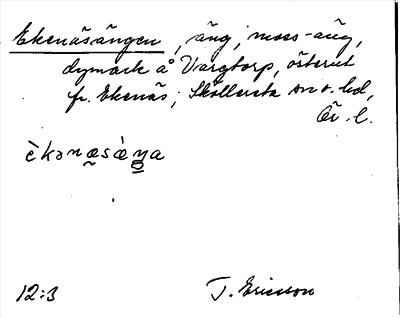 Ekenäsängen, äng, moss-äng,
dymark å Vargtorp, österut
fr. Ekenäs; Sköllersta sn o. hd,
Ör. l.
è̀kənæsæ̀ŋa
12:3 T. Ericsson